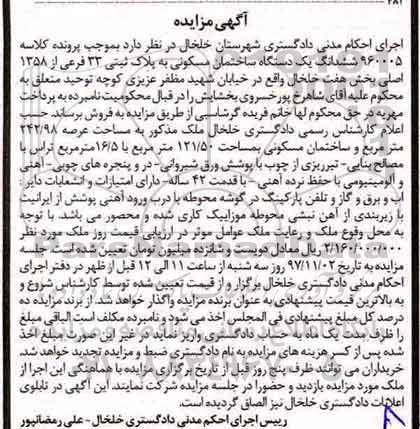 ۲۸۱
آگهی مزایده
اجرای احکام مدنی دادگستری شهرستان خلخال در نظر دارد بموجب پرونده کلاسه
۹۶۰۰۰۵ ششدانگ یک دستگاه ساختمان مسکونی به پلاک ثبتی ۳۳ فرعی از ۱۳۵۸
اصلی بخش هفت خلخال واقع در خیابان شهید مظفر عزیزی کوچه توحید متعلق به
محکوم علیه آقای شاهرخ پورخسروی بخشایش را در قبال محکومیت نامبرده به پرداخت
مهریه در حق محکوم لها خانم فریده گرشاسبی از طریق مزایده به فروش برساند. حسب
اعلام کارشناس رسمی دادگستری خلخال ملک مذکور به مساحت عرصه ۲۴۲/۹۸
متر مربع و ساختمان مسکونی بمساحت ۱۲۱/۵۰ متر مربع با ۱۶/۵مترمربع تراس با
مصالح بنایی- تیرریزی از چوب با پوشش ورق شیروانی- در و پنجره های چوبی- آهنی
و آلومینیومی با حفظ نرده آهنی - با قدمت ۴۲ ساله- دارای امتیازات و انشعابات دایر :
آب و برق و گاز و تلفن پارکینگ در گوشه محوطه با درب ورود آهنی پوشش از ایرانیت
با زیربندی از آهن نبشی محوطه موزاییک کاری شده و محصور می باشد. با توجه
به محل وقوع ملک و رعایت ملک عوامل موثر در ارزیابی قیمت روز ملک مورد نظر
۲/۱۶۰/۰۰۰/۰۰۰ ریال معادل دویست و شانزده میلیون تومان تعیین شده است جلسه
مزایده به تاریخ ۹۷/۱۱/۰۲ روز سه شنبه از ساعت ۱۱ الی ۱۲ قبل از ظهر در دفتر اجرای
احکام مدنی دادگستری خلخال برگزار و از قیمت تعیین شده توسط کارشناس شروع و
به بالاترین قیمت پیشنهادی به عنوان برنده مزایده واگذار خواهد شد. از برنده مزایده ده
درصد کل مبلغ پیشنهادی فی المجلس اخذ می شود و نامبرده مکلف است الباقی مبلغ
را ظرف مدت یک ماه به حساب دادگستری واریز نماید در غیر این صورت مبلغ اخذ
شده پس از کسر هزینه های مزایده به نام دادگستری ضبط و مزایده تجدید خواهد شد.
خریداران می توانند ظرف پنج روز قبل از تاریخ برگزاری مزایده با هماهنگی این اجرا از
ملک مورد مزایده بازدید و حضورا در جلسه مزایده شرکت نمایند. این آگهی در تابلوی
اعلانات دادگستری خلخال نیز الصاق گردیده است.
رییس اجرای احکم مدنی دادگستری خلخال - علی رمضانپور